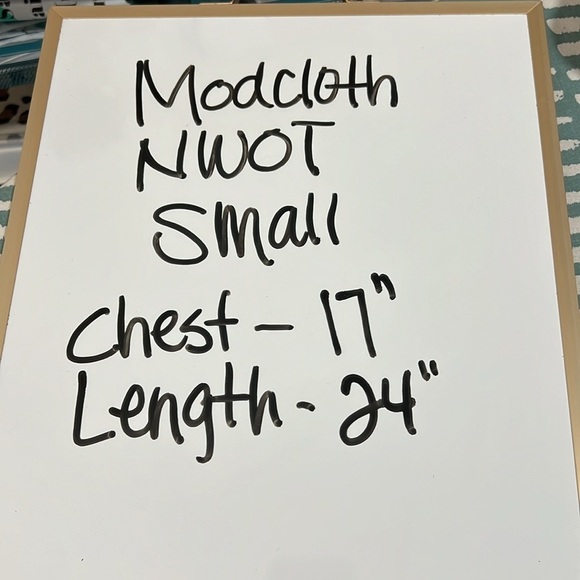 Modcloth
NWOT
Small
Chest - 17"
Length - 24"